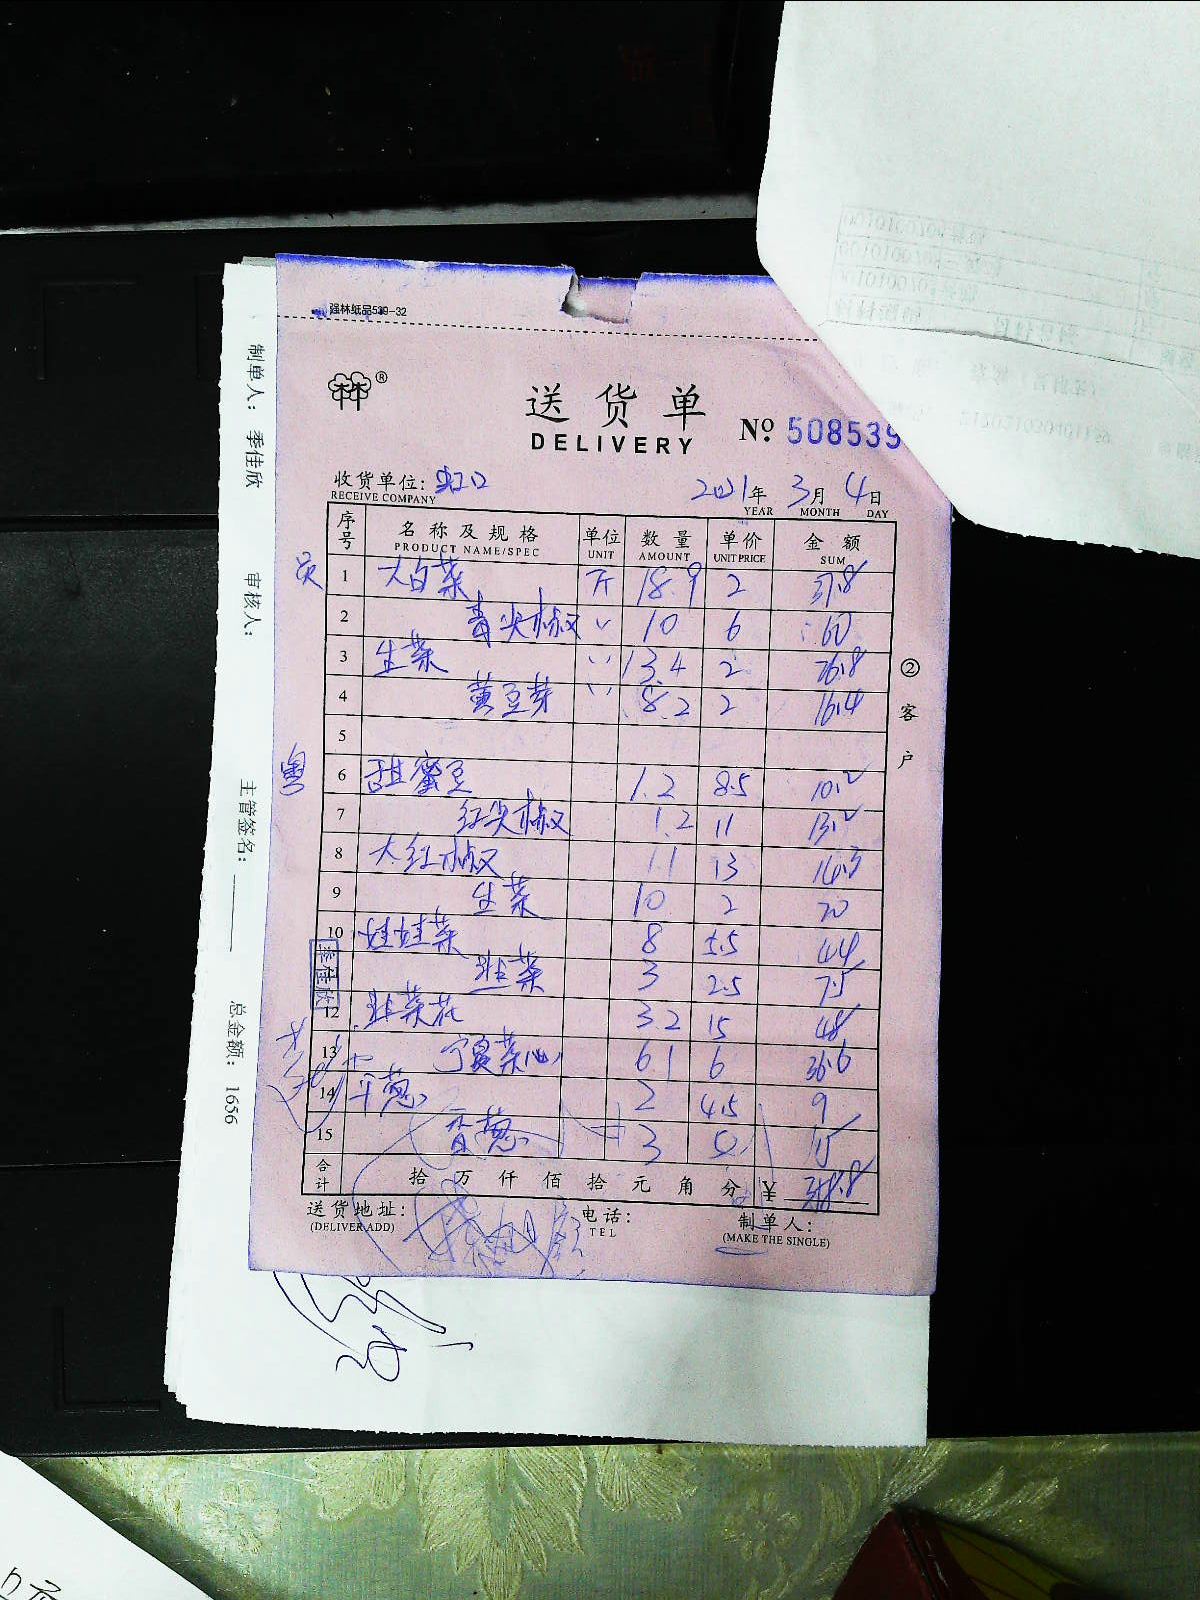 强林纸品539-32
林®
送货单
DELIVERY
No 508539
收货单位: 虹口 2021年 3月 4日
RECEIVE COMPANY YEAR MONTH DAY
序号 名称及规格 单位 数量 单价 金额
PRODUCT NAME/SPEC UNIT AMOUNT UNIT PRICE SUM
1 大白菜 斤 18.9 2 37.8
2 青尖椒 〃 10 6 60
3 生菜 〃 13.4 2 26.8
4 黄豆芽 〃 8.2 2 16.4
5
粤 6 甜蜜豆 1.2 8.5 10.2
7 红尖椒 1.2 11 13.2
8 大红椒 1.1 13 14.3
9 生菜 10 2 20
10 娃娃菜 8 5.5 44
韭菜 3 2.5 7.5
12 韭菜花 3.2 15 48
13 宁夏菜心 6.1 6 36.6
14 平葱 2 4.5 9
15 香葱 3 5 15
合计 拾 万 仟 佰 拾 元 角 分 ¥ 358.8
送货地址: 电话: 制单人:
(DELIVER ADD) TEL (MAKE THE SINGLE)
②客户
季佳欣
制单人: 季佳欣 审核人: 主管签名: 总金额: 1656